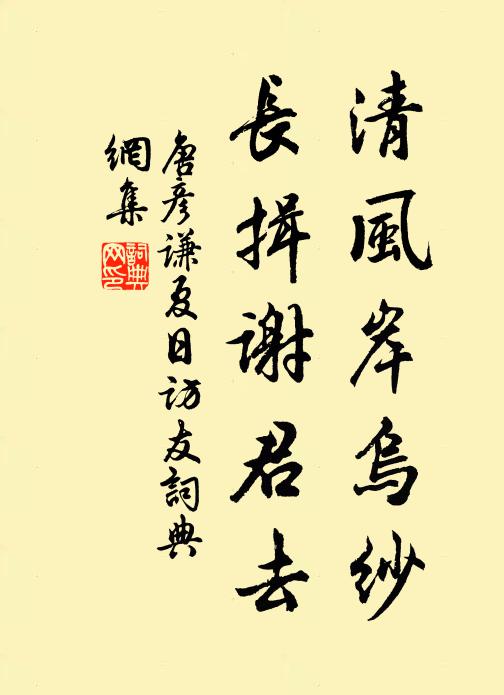 清風岸烏紗
長揖謝君去
唐彥謙夏日訪友詞典
網集
詞典
网印